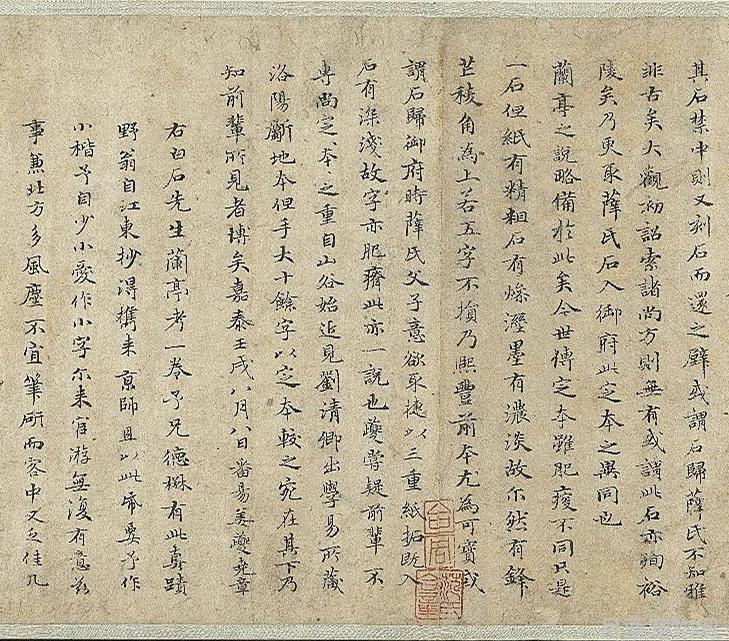 其石禁中則又刻石而還之壁或謂石歸薛氏不知雅
誰古矣大觀初詔索諸尚方則無有或謂此石亦殉裕
陵矣乃更取薛氏石入御府此定本之異同也
蘭亭之說略備於此矣今世傳定本雖肥瘦不同只是
一石但紙有精粗石有燥溼墨有濃淡故尔然有鋒
芒稜角為上若五字不損乃熙豐前本尤為可寶或
謂石歸御府時薛氏父子意欲取捷以三重紙拓既入
石有深淺故字亦肥瘠此亦一說也夔嘗疑前輩不
專尚定本之重自山谷始近見劉清卿出學易所藏
洛陽斷地本但手大十餘字以定本較之宛在其下乃
知前輩所見者博矣嘉泰壬戌八月八日番昜姜夔堯章
右白石先生蘭亭考一卷予兄德楙有此真蹟
野翁自江東抄得攜来京師且以此帋要予作
小楷予自少小愛作小字尔来官游無復有意茲
事兼北方多風塵不宜筆研而客中又乏佳几